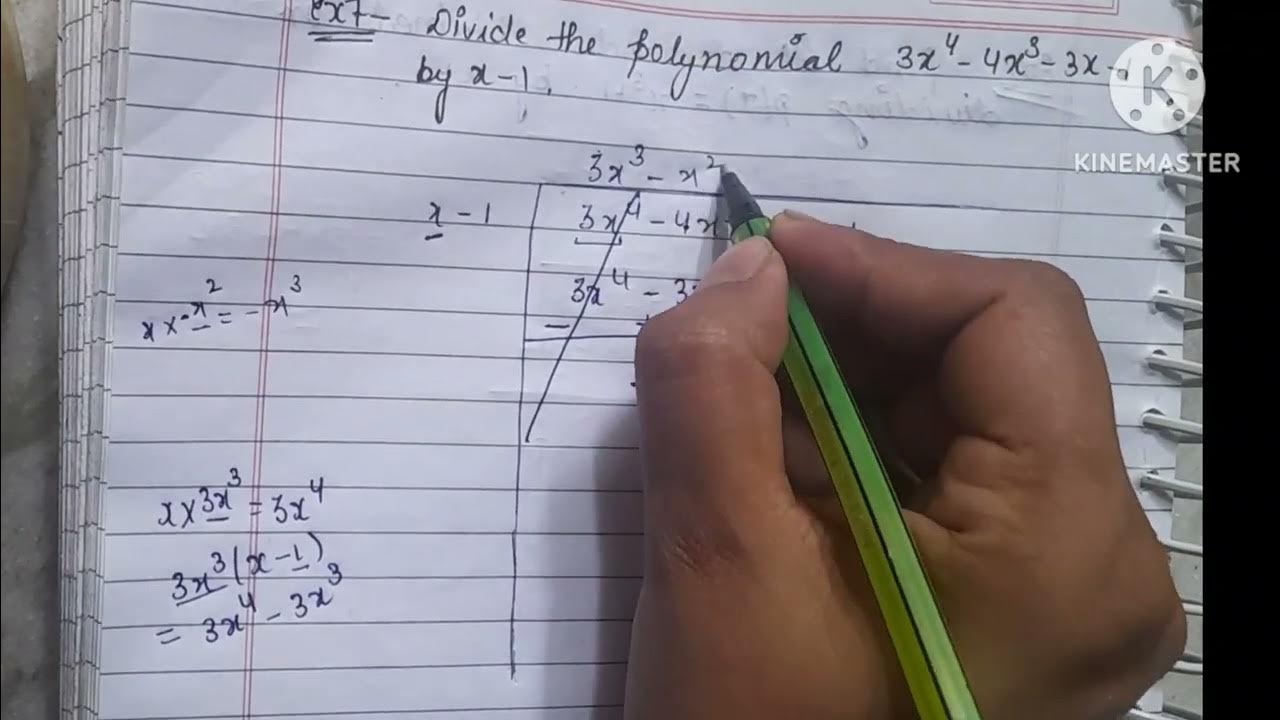 ex7- Divide the polynomial 3x⁴ - 4x³ - 3x - 1
by x - 1.
K
KINEMASTER
3x³ - x²
x - 1
3x⁴ - 4x
3x⁴ - 3
x × -x² = -x³
x × 3x³ = 3x⁴
3x³(x - 1)
= 3x⁴ - 3x³